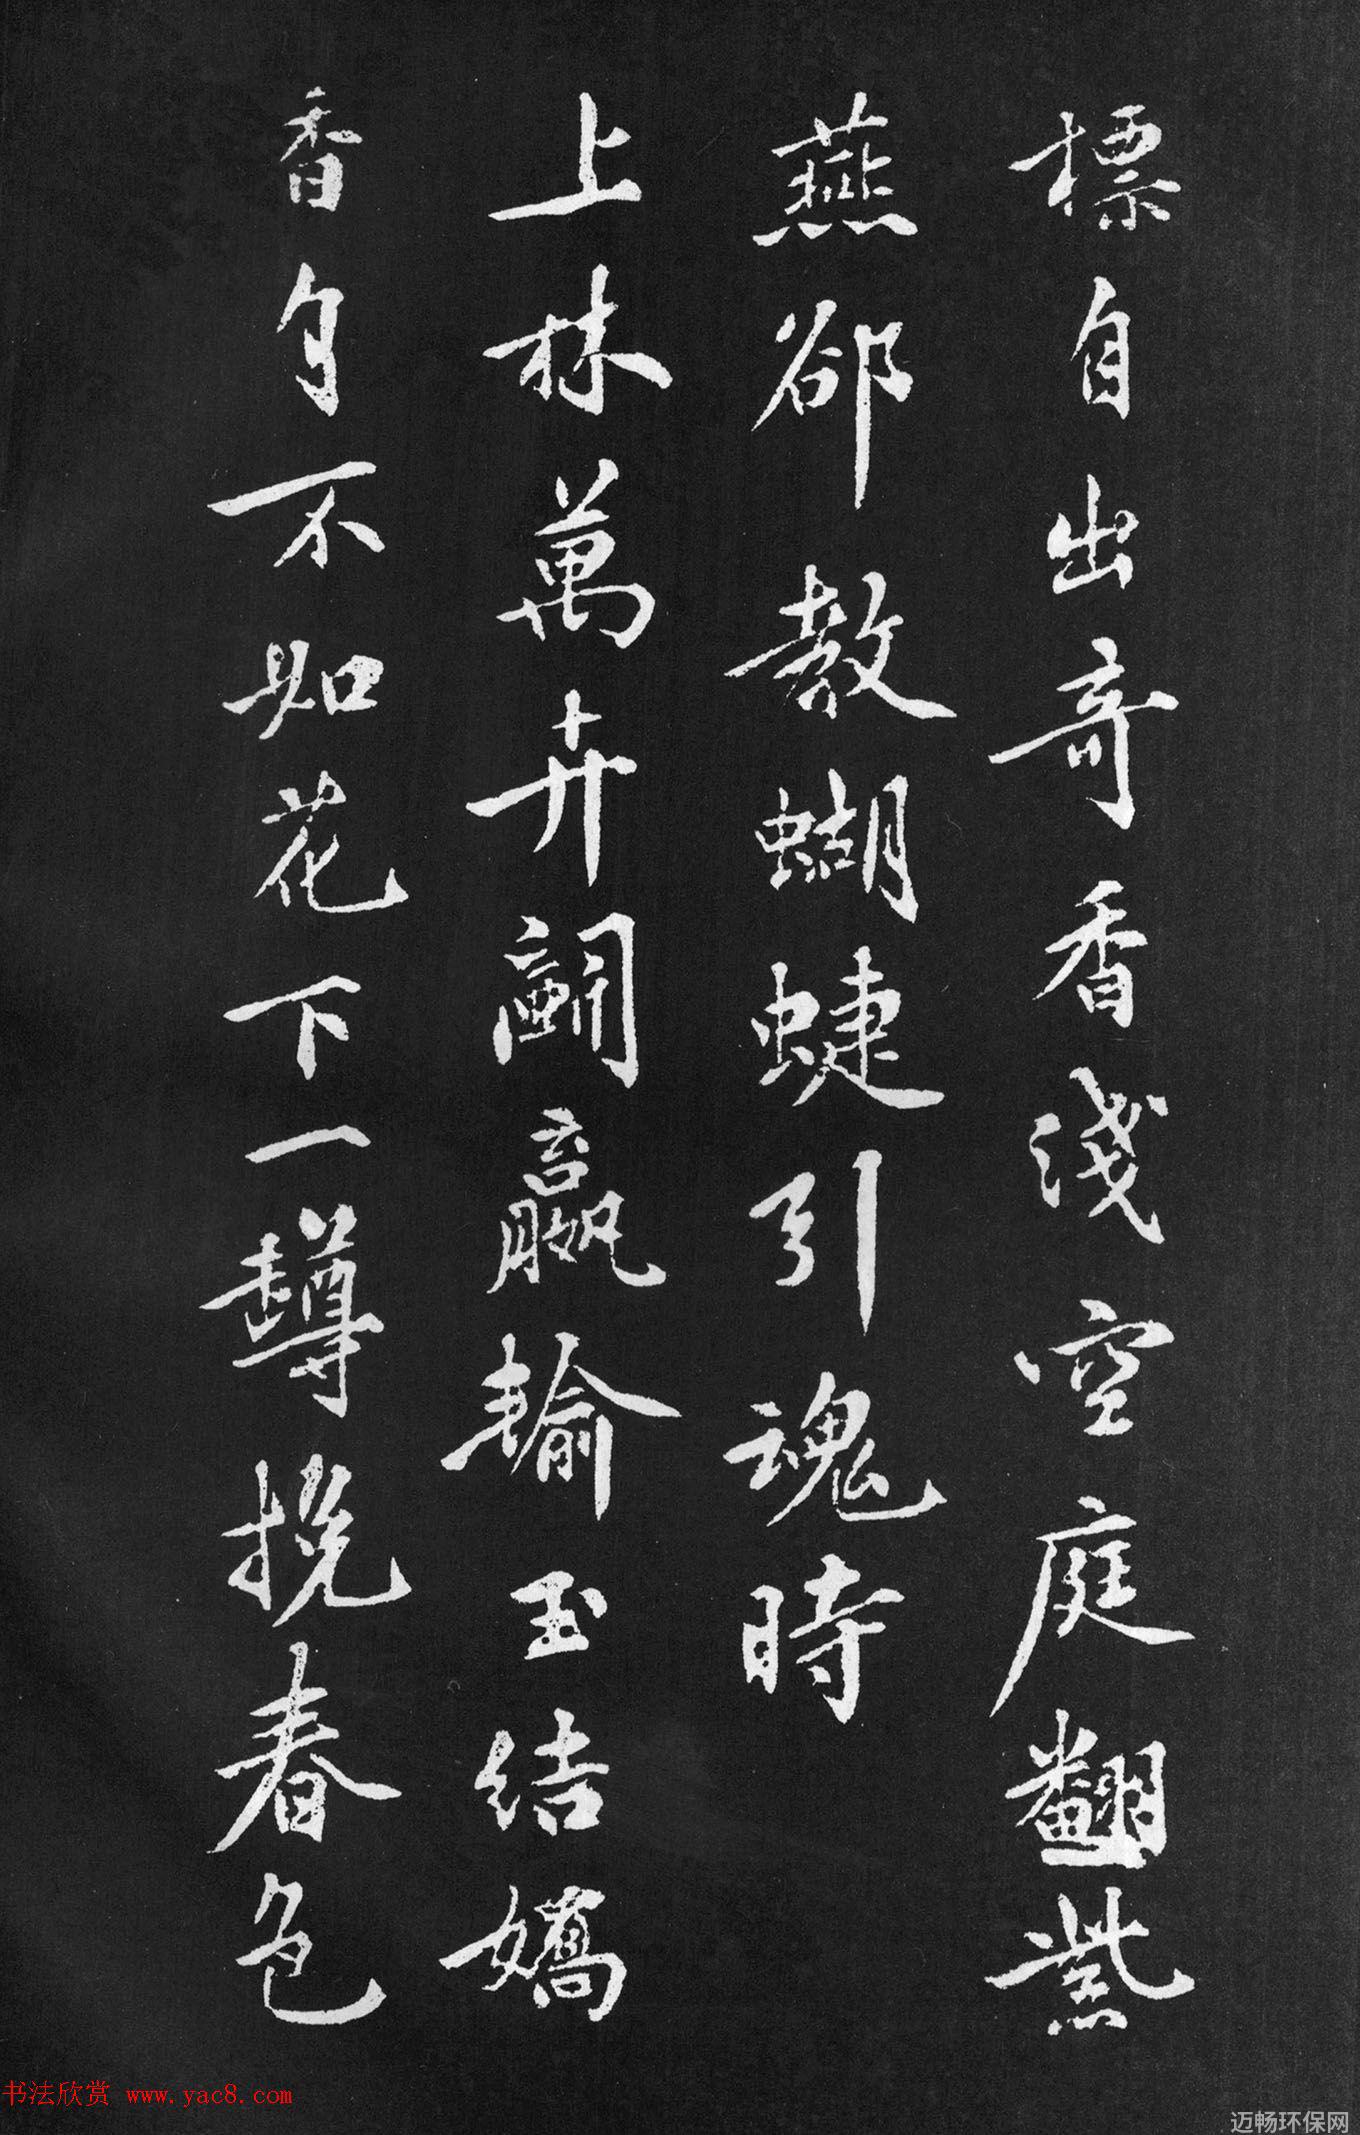 標自出奇香淺空庭翻紫
燕卻教蝴蜨引魂時
上林萬卉鬭嬴輸玉結嬌
香自不如花下一罇挽春色
书法欣赏 www.yac8.com
迈畅环保网